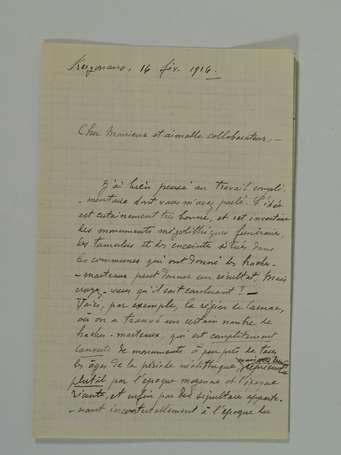 Kerzonano, 14 fév. 1916.
Cher Monsieur et aimable collaborateur,
J'ai bien pensé au travail complé-
-mentaire dont vous m'avez parlé. L'idée
est certainement très bonne, et cet inventaire
des monuments mégalithiques funéraires,
les tumulus et des enceintes situés dans
les communes qui ont donné les haches-
-marteaux peut donner un résultat. Mais
croyez-vous qu'il soit concluant ? —
Voici, par exemple, la région de Carnac,
où on a trouvé un certain nombre de
haches-marteaux, qui est complètement
de monuments à peu près de tous
les âges de la période néolithique,
plutôt par l'époque moyenne et l'époque
récente, et enfin par des sépultures apparte-
-nant incontestablement à l'époque du